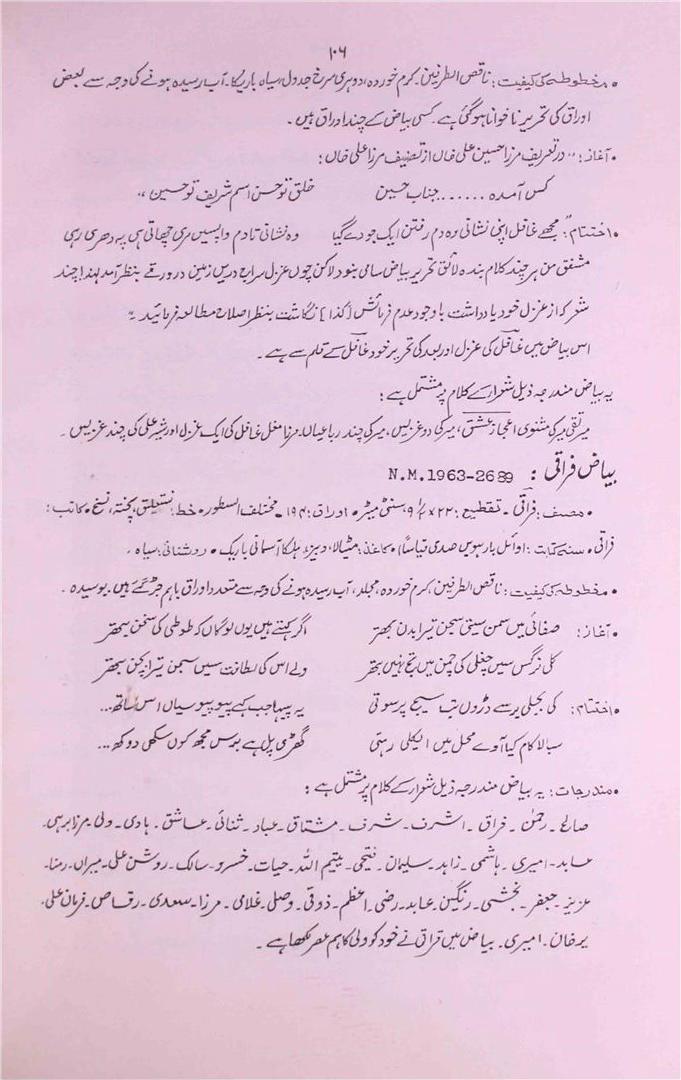 ۱۰۶
• مخطوطہ کی کیفیت: ناقص الطرفین۔ کرم خوردہ، دوہری سرخ جدول، سیاہ باریک۔ آب رسیدہ ہونے کی وجہ سے بعض
اوراق کی تحریر ناخوانا ہوگئی ہے۔ کسی بیاض کے چند اوراق ہیں۔
• آغاز: ”در تعریف مرزا حسین علی خاں از تصنیف مرزا علی خاں:
کس آمدہ ....... جناب حسین خلق تو حسن اسم شریف تو حسین“
• اختتام: ”مجھے غافل اپنی نشانی وہ دم رفتن ایک جو دے گیا وہ نشانی تا دم واپسیں مری چھاتی ہی پہ دھری رہی
مشفق من ہر چند کلام بندہ لائق تحریر بیاض سامی بنود لاکن چوں غزل سراج دریں زمین در ورقے بنظر آمد لہٰذا چند
شعر کہ از غزل خود یادداشت باوجود عدم فرمائش [کذا] نگاشت بنظر اصلاح مطالعہ فرمائید“
اس بیاض میں غافل کی غزل اور بعد کی تحریر خود غافل کے قلم سے ہے۔
یہ بیاض مندرجہ ذیل شعراء کے کلام پر مشتمل ہے:
میر تقی میر کی مثنوی اعجاز عشق، میر کی دو غزلیں، میر کی چند رباعیاں۔ مرزا مغل غافل کی ایک غزل اور شیر علی کی چند غزلیں۔
بیاض فراقی: N.M.1963-2689
• مصنف: فراقی۔ تقطیع: ۲۲ × ۹ سنٹی میٹر۔ • اوراق: ۱۹۴۔ مختلف السطور۔ خط: نستعلیق، پختہ، نسخ • کاتب:
فراقی • سنہ کتابت: اوائل بارہویں صدی (قیاساً)، • کاغذ: مٹیالا، دبیز، ہلکا آسمانی باریک • روشنائی: سیاہ۔
• مخطوطہ کی کیفیت: ناقص الطرفین، کرم خوردہ، مجلد، آب رسیدہ ہونے کی وجہ سے متعدد اوراق باہم جڑ گئے ہیں۔ بوسیدہ۔
• آغاز: صفائی میں سمن سیتی سجن تیرا بدن بھتر اگر کہتے ہیں یوں لوگاں کہ طوطی کی سخن بھتر
کلی نرگس سیں چنپلی کی چمن میں تج نہیں بھتر ولے اس کی لطافت سیں سجن تیرا بچن بھتر
• اختتام: کی بجلی پر سے ڈڑوں تب سیج پر سوتی یہ پیہا جب کہے پیو پیو سیاں اس ساتھ...
سبالا کام کیا آوے محل میں اکیلی رہتی گھڑی پل ہے برس مجھ کوں سکھی دوکھ...
• مندرجات: یہ بیاض مندرجہ ذیل شعراء کے کلام پر مشتمل ہے:
صالح۔ رحمٰن۔ فراقی۔ اشرف۔ شرف۔ مشتاق۔ عباد۔ ثنائی۔ عاشق۔ ہادی۔ ولی۔ مرزا برہی۔
عابد۔ امیری۔ ہاشمی۔ زاہد۔ سلیمان۔ فتحی۔ یتیم اللہ۔ حیات۔ خسرو۔ سالک۔ روشن علی۔ میراں۔ رضا۔
عزیز۔ جعفر۔ بخشی۔ رنگین۔ عابد۔ رضی۔ اعظم۔ ذوقی۔ وصلی۔ غلامی۔ مرزا۔ سعدی۔ رقاص۔ فرمان علی۔
یرخان۔ امیری۔ بیاض میں فراقی نے خود کو ولی کا ہم عصر لکھا ہے۔